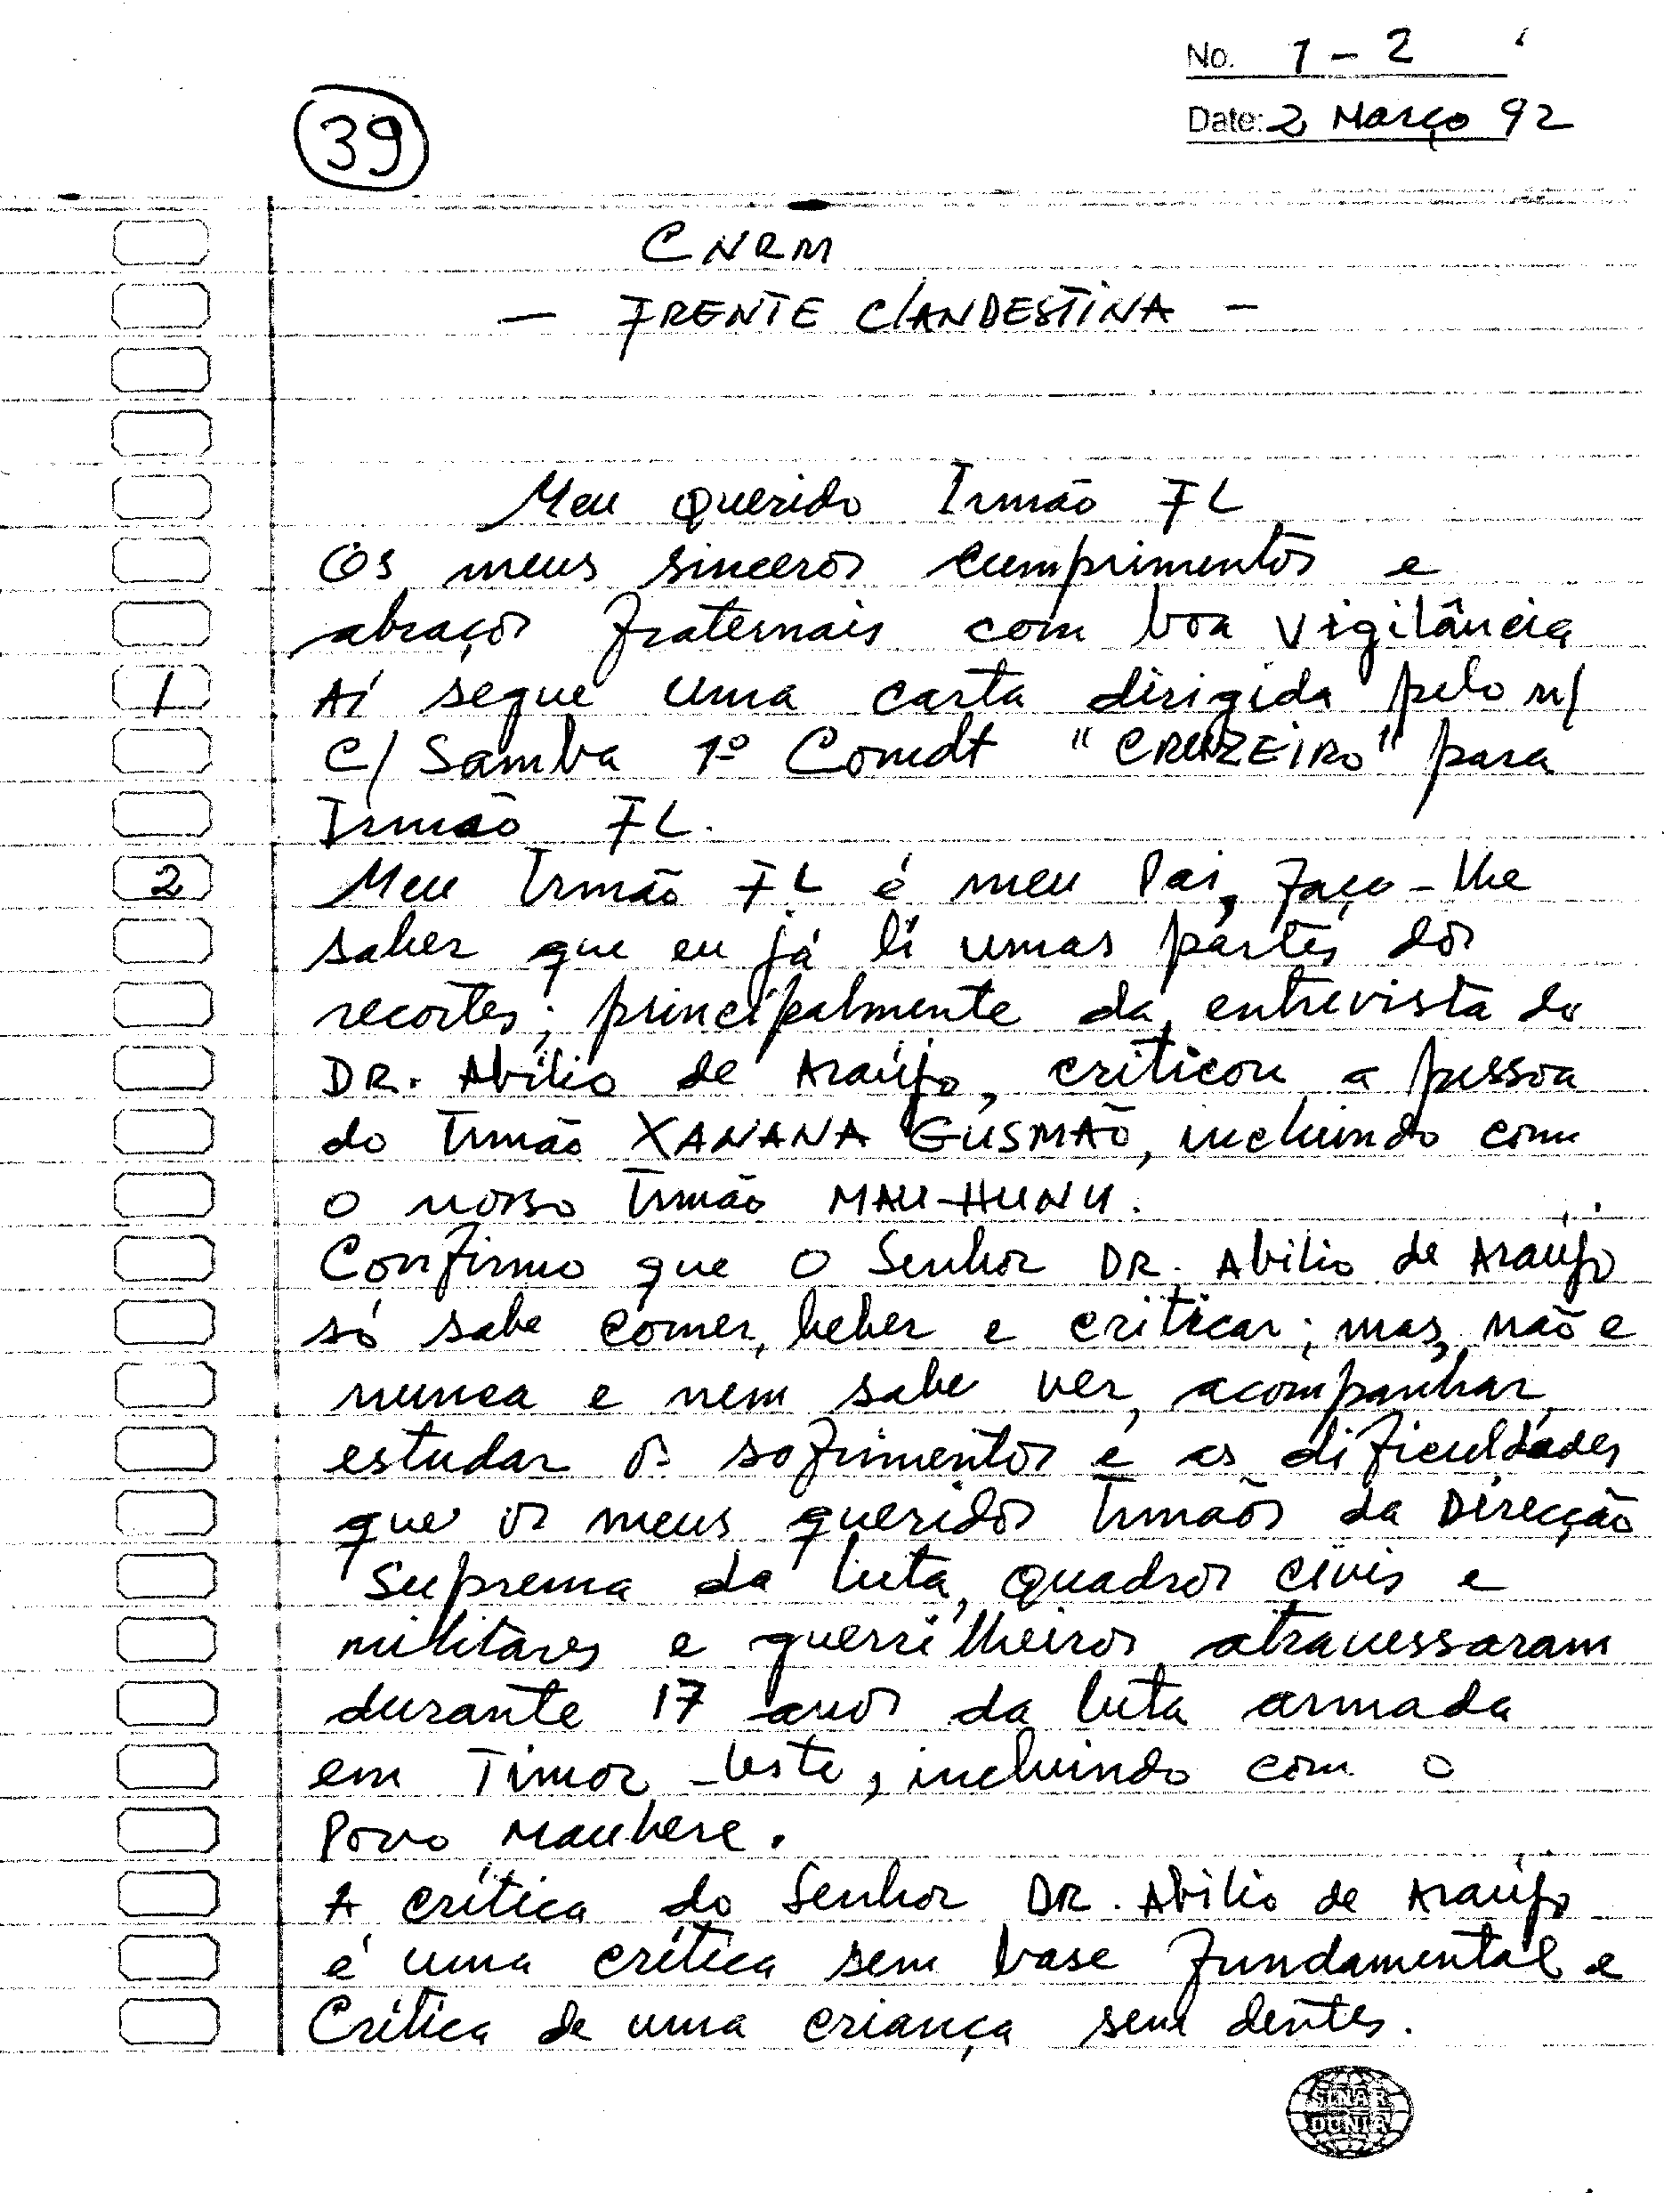 No. 1-2
Date: 2 Março 92
39
CNRM
- FRENTE ClANDESTiNA -
Meu Querido Irmão FL
Os meus sinceros cumprimentos e
abraços fraternais com boa vigilância
1 Aí segue uma carta dirigida pelo n/
C/ Samba 1º Comdt "CRUZEIRO" para
Irmão FL.
2 Meu Irmão FL é meu Pai, faço-lhe
saber que eu já li umas partes dos
recortes; principalmente da entrevista do
DR. Abílio de Araújo, criticou a pessoa
do Irmão XANANA GUSMÃO, incluindo com
o nosso Irmão MAU-HUNU.
Confirmo que o Senhor DR. Abilio de Araújo
só sabe comer, beber e criticar; mas, não e
nunca e nem sabe ver, acompanhar,
estudar os sofrimentos e as dificuldades
que os meus queridos Irmãos da Direcção
Suprema da luta, Quadros civis e
militares e guerrilheiros atravessaram
durante 17 anos da luta armada
em Timor-Leste, incluindo com o
Povo Maubere.
A crítica do Senhor DR. Abílio de Araújo
é uma crítica sem base fundamental e
Crítica de uma criança sem dentes.
SINAR
DUNIA